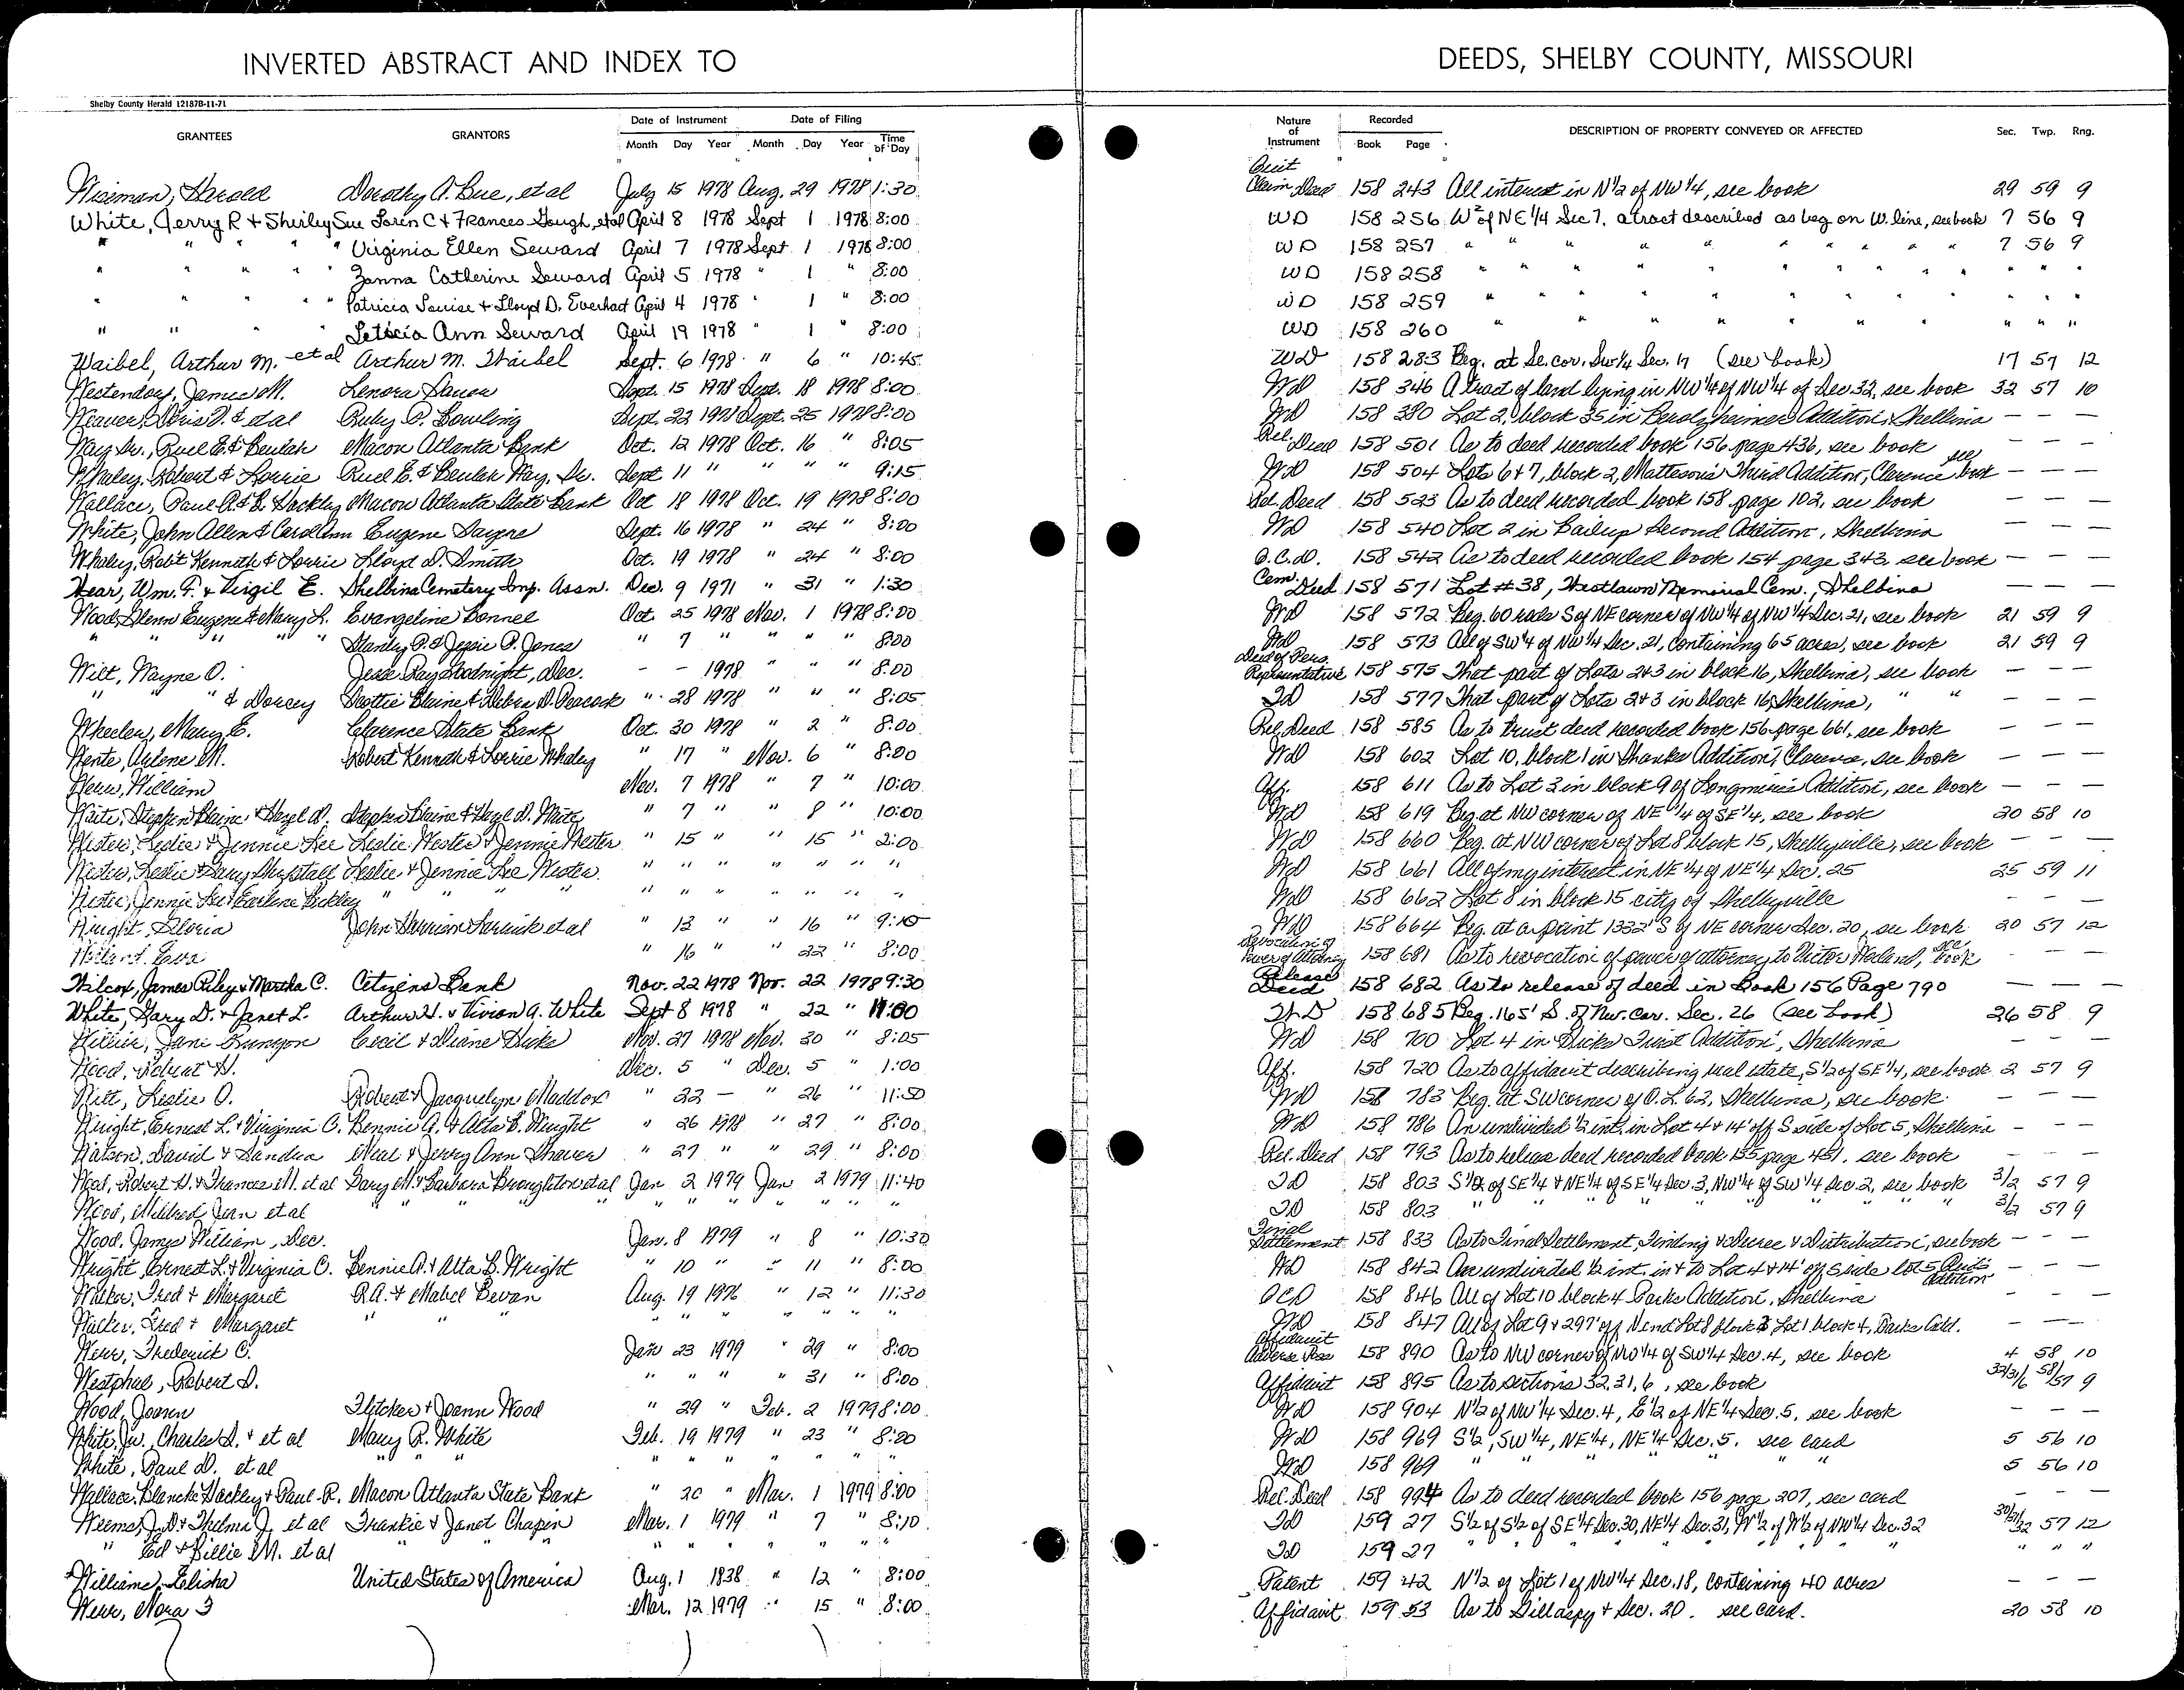 INVERTED ABSTRACT AND INDEX TO
DEEDS, SHELBY COUNTY, MISSOURI
Shelby County Herald 12187B-11-71
GRANTEES GRANTORS Date of Instrument Month Day Year Date of Filing Month Day Year Time of Day
Nature of Instrument Recorded Book Page DESCRIPTION OF PROPERTY CONVEYED OR AFFECTED Sec. Twp. Rng.
Wiseman, Herold Dorothy A. Bue, et al July 15 1978 Aug. 29 1978 1:30 Quit Claim Deed 158 243 All interest in N½ of NW ¼, see book 29 59 9
White, Jerry R + Shirley Sue Loren C + Frances Gough, etal April 8 1978 Sept 1 1978 8:00 WD 158 256 W² of NE ¼ Sec 7, a tract described as beg on W. line, see book 7 56 9
" " " " " Virginia Ellen Seward April 7 1978 Sept 1 1978 8:00 WD 158 257 " " " " " " " " " 7 56 9
" " " " " Zanna Catherine Seward April 5 1978 " 1 " 8:00 WD 158 258 " " " " " " " " " " " "
" " " " " Patricia Louise + Lloyd D. Everhart April 4 1978 " 1 " 8:00 WD 158 259 " " " " " " " " " " " "
" " " " Leticia Ann Seward April 19 1978 " 1 " 8:00 WD 158 260 " " " " " " " " " "
Waibel, Arthur M. et al Arthur M. Waibel Sept. 6 1978 " 6 " 10:45 WD 158 283 Beg. at Se. cor. Sw¼ Sec. 17 (see book) 17 57 12
Westendorf, James M. Lenora Sauer Sept. 15 1978 Sept. 18 1978 8:00 WD 158 346 A tract of land lying in NW ¼ of NW ¼ of Sec 32, see book 32 57 10
Weaver, Doris V. & et al Ruby P. Bowling Sept. 22 1978 Sept. 25 1978 8:00 WD 158 380 Lot 2, block 35 in Addition, Shelbina — — —
Way Sr., Ruel E. & Beulah Macon Atlanta Bank Oct. 12 1978 Oct. 16 " 8:05 Rel. Deed 158 501 As to deed recorded book 156 page 436, see book — — —
Whaley, Robert & Lorrie Ruel E. & Beulah Way, Sr. Sept 11 " " " " 9:15 WD 158 504 Lots 6 + 7, block 2, Matteson's Third Addition, Clarence see book — — —
Wallace, Paul R. & B. Hackley Macon Atlanta State Bank Oct 18 1978 Oct. 19 1978 8:00 Rel. Deed 158 523 As to deed recorded book 158 page 102, see book — — —
White, John Allen & Carol Ann Eugene Sayre Sept. 16 1978 " 24 " 8:00 WD 158 540 Lot 2 in Second Addition, Shelbina — — —
Whaley, Robt Kenneth & Lorrie Lloyd D. Smith Oct. 19 1978 " 24 " 8:00 Q.C.D. 158 542 As to deed recorded book 154 page 343, see book — — —
Wear, Wm. F. + Virgil E. Shelbina Cemetery Imp. Assn. Dec. 9 1971 " 31 " 1:30 Cem. Deed 158 571 Lot #38, Westlawn Memorial Cem., Shelbina — — —
Wood, Glenn Eugene & Mary L. Evangeline Bonnel Oct. 25 1978 Nov. 1 1978 8:00 WD 158 572 Beg. 60 rods S of NE corner of NW ¼ of NW ¼ Sec. 21, see book 21 59 9
" " " " " Stanley P. & Jessie P. Jones " 7 " " " " 8:00 WD 158 573 All of SW ¼ of NW ¼ Sec. 21, containing 65 acres, see book 21 59 9
Wilt, Wayne O. Jesse Ray Goodnight, Dec. - - 1978 " " " 8:00 Deed of Pers. Representative 158 575 That part of Lots 2 & 3 in block 16, Shelbina, see book — — —
" " & Dorcey Scottie Blaine & Debra D. Peacock " 28 1978 " " " 8:05 TD 158 577 That part of Lots 2 & 3 in block 16, Shelbina, " " — — —
Wheeler, Mary E. Clarence State Bank Oct. 30 1978 " 2 " 8:00 Rel. Deed 158 585 As to trust deed recorded book 156 page 661, see book — — —
Wente, Arlene M. Robert Kenneth & Lorrie Whaley " 17 " Nov. 6 " 8:00 WD 158 602 Lot 10, block 1 in Shanks Addition, Clarence, see book — — —
Werr, William Nov. 7 1978 " 7 " 10:00 Aff. 158 611 As to Lot 3 in block 9 of Longmire's Addition, see book — — —
Waite, Stephen Blaine & Hazel D. Stephen Blaine & Hazel D. Waite " 7 " " 8 " 10:00 WD 158 619 Beg. at NW corner of NE ¼ of SE ¼, see book 20 58 10
Wester, Leslie + Jennie Lee Leslie Wester + Jennie Wester " 15 " " 15 " 2:00 WD 158 660 Beg. at NW corner of Lot 8 block 15, Shelbyville, see book — — —
Wester, Leslie + Leslie + Jennie Lee Wester " " " " " " " WD 158 661 All of my interest in NE ¼ of NE ¼ Sec. 25 25 59 11
Wester, Jennie Lee + Earlene Buckley " " " " " " " " WD 158 662 Lot 8 in block 15 city of Shelbyville — — —
Wright, Gloria John et al " 13 " " 16 " 9:10 WD 158 664 Beg. at a point 1332' S of NE corner Sec. 20, see book 20 57 12
Eva " 16 " " 22 " 8:00 Revocation of Power of Attorney 158 681 As to revocation of power of attorney to Victor, see book — —
Wilcox, James Riley + Martha C. Citizens Bank Nov. 22 1978 Nov. 22 1978 9:30 Release Deed 158 682 As to release of deed in Book 156 Page 790 — — —
White, Gary D. + Janet L. Arthur H. + Vivion A. White Sept 8 1978 " 22 " 11:00 W.D 158 685 Beg. 165' S. of Nw. Cor. Sec. 26 (see book) 26 58 9
Jane Cecil + Diane Dicks Nov. 27 1978 Nov. 30 " 8:05 WD 158 700 Lot 4 in Dicks First Addition, Shelbina — — —
Wood, Robert H. Dec. 5 " Dec. 5 " 1:00 Aff. 158 720 As to affidavit describing real estate, S½ of SE ¼, see book 2 57 9
Witt, Leslie O. Robert + Jacquelyn Maddox " 22 — " 26 " 11:50 WD 158 783 Beg. at SW corner of O.L. 62, Shelbina, see book — — —
Wright, Ernest L. + Virginia O. Bennie A. + Alta B. Wright " 26 1978 " 27 " 8:00 WD 158 786 An undivided ½ int. in Lot 4 + 14' off S side of Lot 5, Shelbina — — —
Watson, David + Sandra Neal + Jerry Ann Shaver " 27 " " 29 " 8:00 Rel. Deed 158 793 As to release deed recorded book 155 page 451, see book — — —
Wood, Robert H. + Frances M. et al Gary M. + Barbara Broughton et al Jan 2 1979 Jan 2 1979 11:40 TD 158 803 S½ of SE ¼ + NE ¼ of SE ¼ Sec. 3, NW ¼ of SW ¼ Sec. 2, see book 3/2 57 9
Wood, Mildred Jean et al " " " " " " " " " TD 158 803 " " " " " " " 3/2 57 9
Wood, James William, Dec. Jan. 8 1979 " 8 " 10:30 Final Settlement 158 833 As to Final Settlement, Finding + Decree + Distribution, see book — — —
Wright, Ernest L. + Virginia O. Bennie A. + Alta B. Wright " 10 " " 11 " 8:00 WD 158 842 An undivided ½ int. in + to Lot 4 + 14' off S side lot 5 Addition — — —
Walker, Fred + Margaret R.A. + Mabel Bevan Aug. 19 1976 " 12 " 11:30 QCD 158 846 All of Lot 10 block 4 Parks Addition, Shelbina — — —
Walker, Fred + Margaret " " " " " " " " " WD 158 847 All of Lot 9 + 297' off N end Lot 8 block 3 Lot 1 block 4, Parks Add. — — —
Werr, Frederick C. Jan 23 1979 " 29 " 8:00 Affidavit Adverse Poss 158 890 As to NW corner of NW ¼ of SW ¼ Sec. 4, see book 4 58 10
Westphal, Robert D. " " " " 31 " 8:00 Affidavit 158 895 As to sections 32, 31, 6, see book 32/31/6 58/57 9
Wood, Joann Fletcher + Joann Wood " 29 " Feb. 2 1979 8:00 WD 158 904 N½ of NW ¼ Sec. 4, E½ of NE ¼ Sec. 5, see book — — —
White, Jr., Charles D. + et al Mary R. White Feb. 19 1979 " 23 " 8:20 WD 158 969 S½, SW ¼, NE ¼, NE ¼ Sec. 5. see card 5 56 10
White, Paul D. et al " " " " " " " " " WD 158 969 " " " " " " 5 56 10
Wallace, Blanche Hackley + Paul R. Macon Atlanta State Bank " 20 " Mar. 1 1979 8:00 Rel. Deed 158 994 As to deed recorded book 156 page 207, see card — — —
Weems, J.D. + Thelma J. et al Frankie + Janet Chapin Mar. 1 1979 " 7 " 8:10 TD 159 27 S½ of S½ of SE ¼ Sec. 30, NE ¼ Sec. 31, W½ of W½ of NW ¼ Sec. 32 30/31/32 57 12
" Ed + Billie M. et al " " " " " " " " " TD 159 27 " " " " " " " " " "
Williams, Elisha United States of America Aug. 1 1838 " 12 " 8:00 Patent 159 42 N½ of Lot 1 of NW ¼ Sec. 18, containing 40 acres — — —
Werr, Nora J Mar. 12 1979 " 15 " 8:00 Affidavit 159 53 As to Gillaspy + Sec. 20. see card. 20 58 10